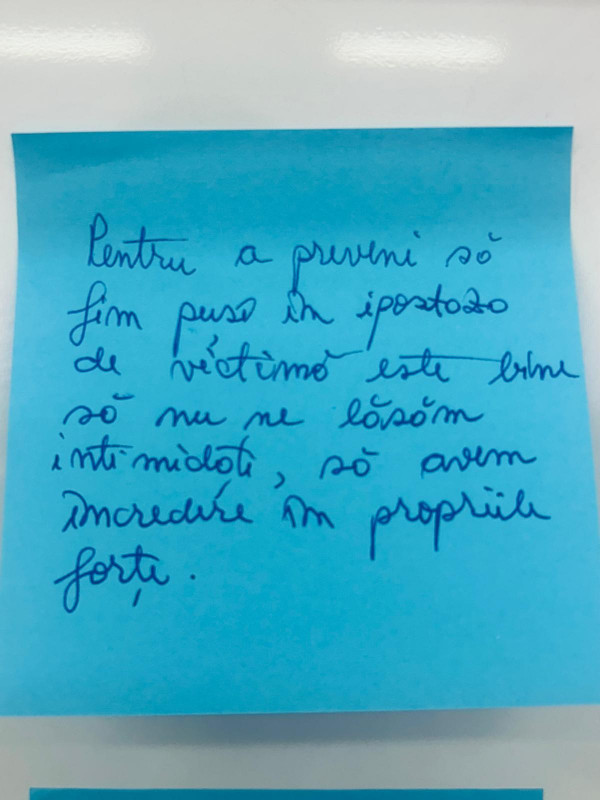 Pentru a preveni să
fim puși în ipostaza
de victimă este bine
să nu ne lăsăm
intimidați, să avem
încredere în propriile
forțe.